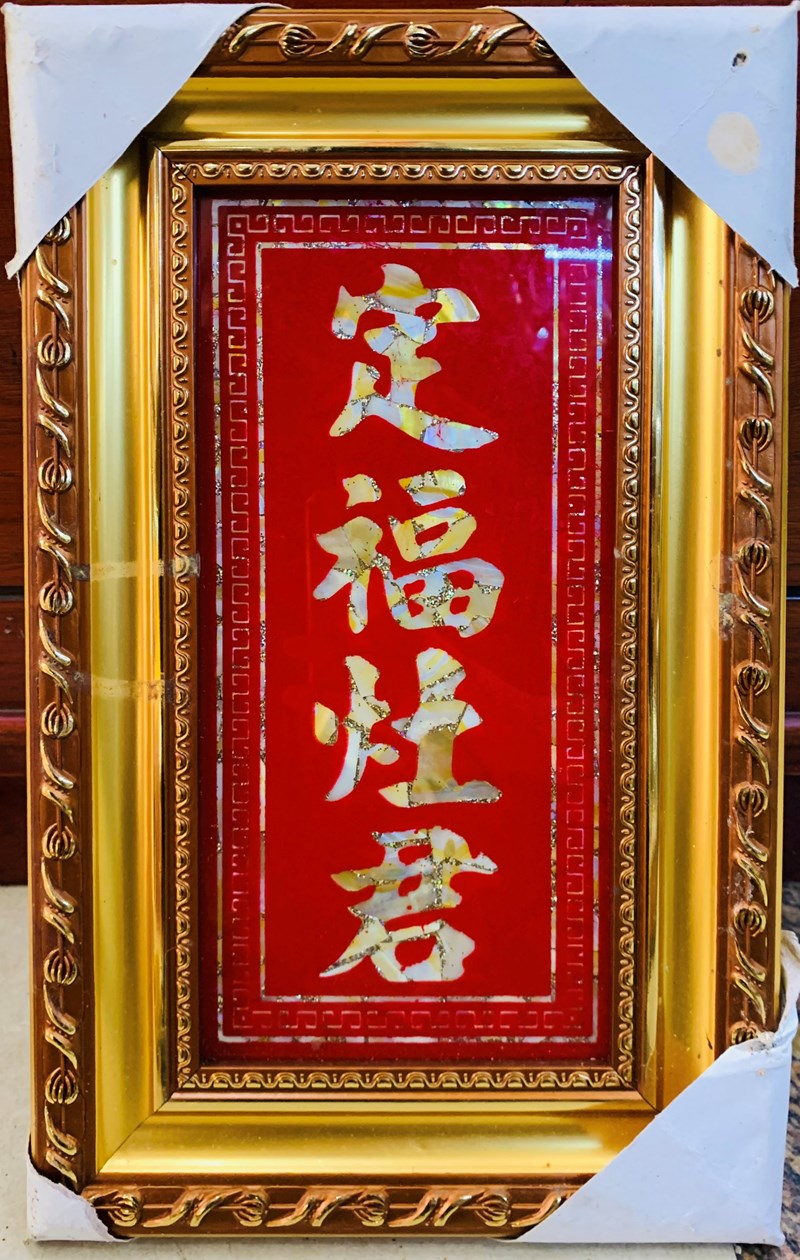 定福灶君